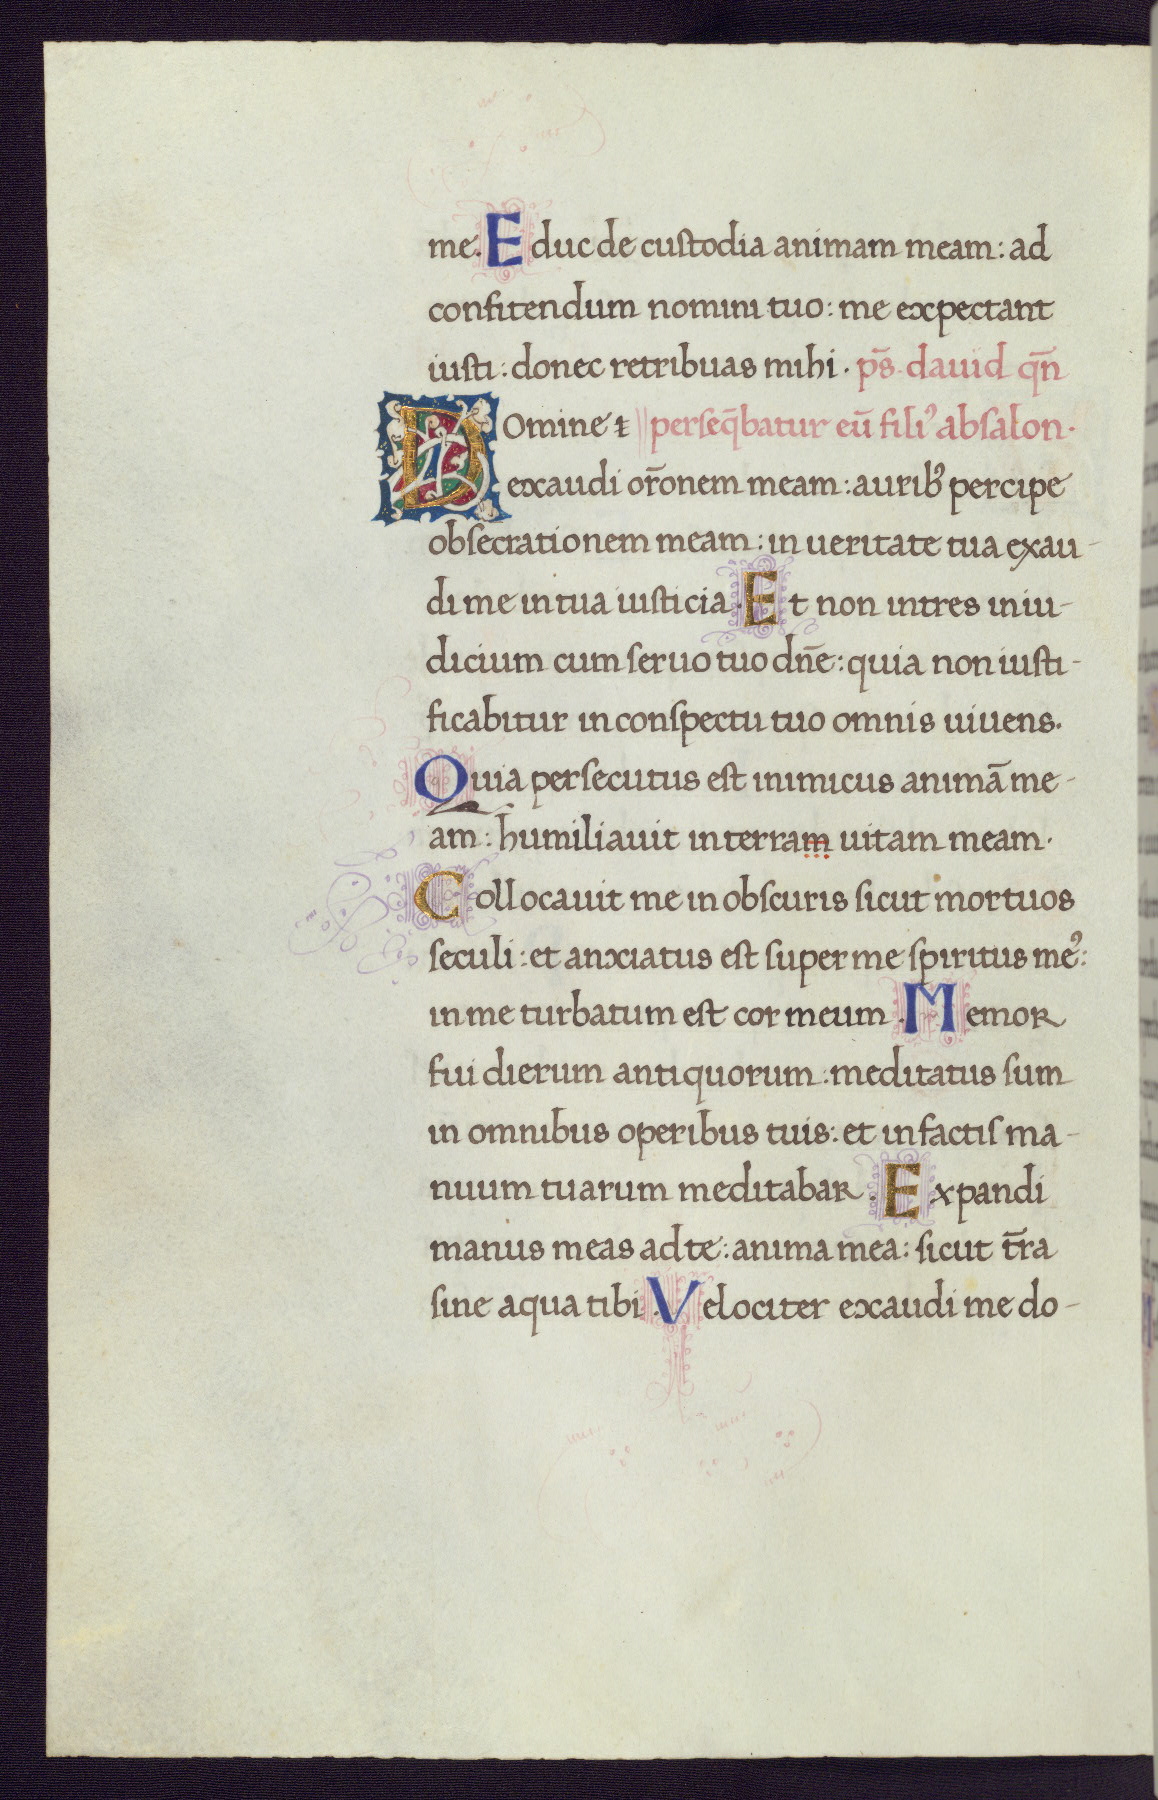 me. Educ de custodia animam meam: ad
confitendum nomini tuo: me expectant
iusti: donec retribuas mihi. ps̄. dauid qn̄
Domine ⁊ perseq̄batur eū fili᾿ absalon.
exaudi or̄onem meam: aurib᾿ percipe
obsecrationem meam: in ueritate tua exau-
di me in tua iusticia. Et non intres in iu-
dicium cum seruo tuo dn̄e: quia non iusti-
ficabitur in conspectu tuo omnis uiuens.
Quia persecutus est inimicus animā me-
am: humiliauit in terram uitam meam.
Collocauit me in obscuris sicut mortuos
seculi: et anxiatus est super me spiritus me᾿:
in me turbatum est cor meum. Memor
fui dierum antiquorum: meditatus sum
in omnibus operibus tuis: et in factis ma-
nuum tuarum meditabar. Expandi
manus meas ad te: anima mea: sicut t̄ra
sine aqua tibi. Velociter exaudi me do-